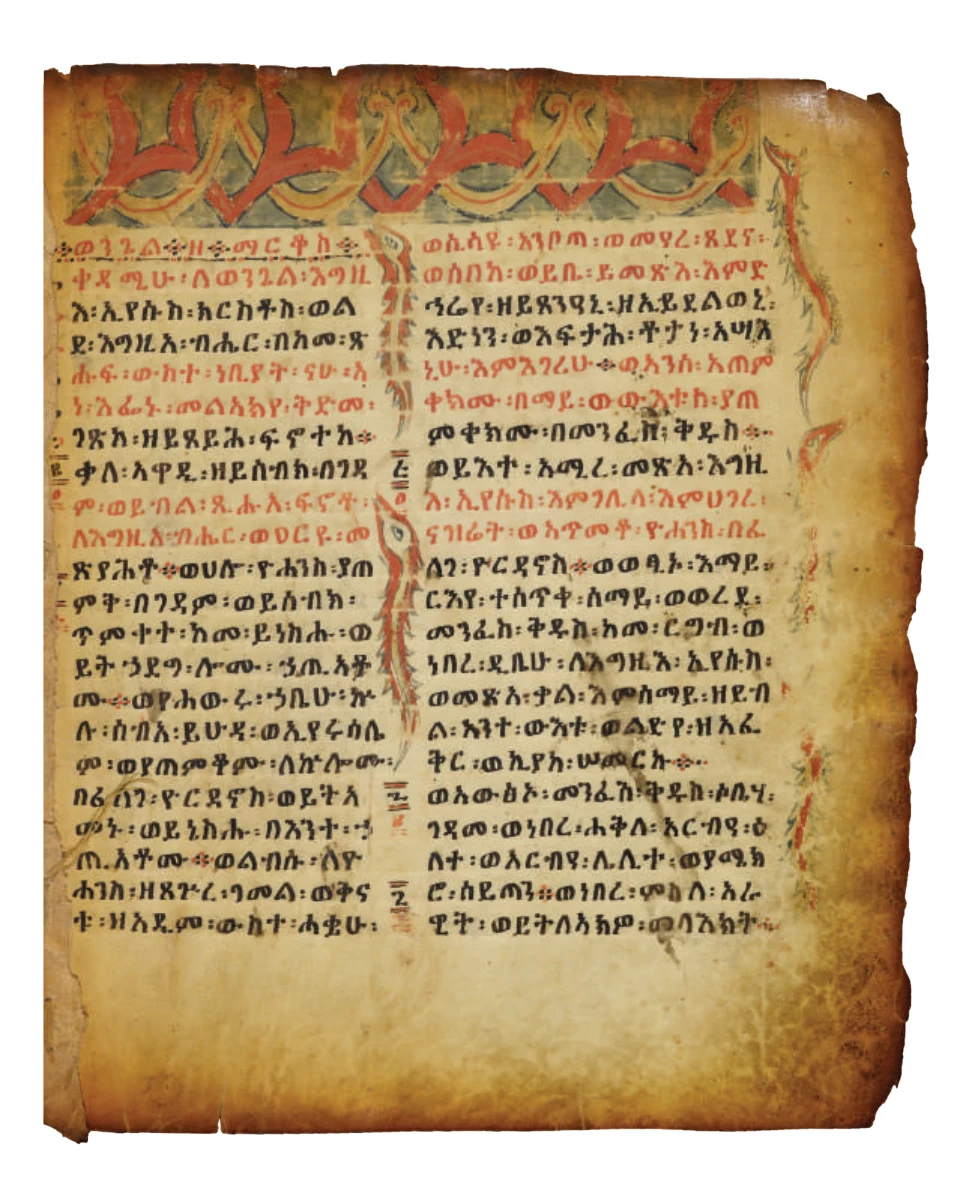 ፨ወንጌል፨ዘ፨ማርቆስ፨
ቀዳሚሁ፡ለወንጌል፡እግዚ
እ፡ኢየሱስ፡ክርስቶስ፡ወል
ደ፡እግዚአ፡ብሔር፡በከመ፡ጽ
ሑፍ፡ውስተ፡ነቢያት፡ናሁ፡አ
ነ፡እፌኑ፡መልአክየ፡ቅድመ፡
ገጽከ፡ዘይጸይሕ፡ፍኖተከ፨
ቃለ፡ዓዋዲ፡ዘይሰብክ፡በገዳ
ም፡ወይብል፡ጺሑአ፡ፍኖት፡
ለእግዚአ፡ብሔር፡ወዐርዩ፡መ
ጽያሕቶ፨ወሀሎ፡ዮሐንስ፡ያጠ
ምቅ፡በገዳም፡ወይሰብክ፡
ጥምቀተ፡ከመ፡ይነስሑ፡ወ
ይትኃደግ፡ሎሙ፡ኃጢአቶ
ሙ፨ወየሐውሩ፡ኃቤሁ፡ኵ
ሉ፡ሰብአ፡ይሁዳ፡ወኢየሩሳሌ
ም፡ወያጠምቆሙ፡ለኵሎሙ፡
በፈለገ፡ዮርዳኖስ፡ወይትአ
መኑ፡ወይኔስሑ፡በእንተ፡ኃ
ጢአቶሙ፨ወልብሱ፡ለዮ
ሐንስ፡ዘጸጕረ፡ገመል፡ወቅና
ቱ፡ዘአዲም፡ውስተ፡ሐቌሁ፡
ወሲሳዩ፡አንቦጣ፡ወመዓረ፡ጸደና፡
ወሰበከ፡ወይቤ፡ይመጽእ፡እምድ
ኅሬየ፡ዘይጸንዓኒ፡ዘኢይደልወኒ፡
እድነን፡ወእፍታሕ፡ቶታነ፡አሣእ
ኒሁ፡እምእገሪሁ፨ወአንሰ፡አጠም
ቀክሙ፡በማይ፡ወውእቱሰ፡ያጠ
ምቀክሙ፡በመንፈስ፡ቅዱስ፨
ወይእተ፡አሚረ፡መጽአ፡እግዚ
እ፡ኢየሱስ፡እምገሊላ፡እምሀገረ፡
ናዝሬት፡ወአጥመቆ፡ዮሐንስ፡በፈ
ለገ፡ዮርዳኖስ፨ወወፂኦ፡እማይ፡
ርእየ፡ተሰጥቀ፡ሰማይ፡ወወረደ፡
መንፈስ፡ቅዱስ፡ከመ፡ርግብ፡ወ
ነበረ፡ዲቤሁ፡ለእግዚእ፡ኢየሱስ፡
ወመጽአ፡ቃል፡እምሰማይ፡ዘይብ
ል፡አንተ፡ውእቱ፡ወልድየ፡ዘአፈ
ቅር፡ወኪያከ፡ሠመርኩ፨
ወአውፅኦ፡መንፈስ፡ቅዱስ፡ሶቤሃ፡
ገዳመ፡ወነበረ፡ሐቅለ፡አርብዓ፡ዕ
ለተ፡ወአርብዓ፡ሌሊተ፡ወያሜክ
ሮ፡ሰይጣን፨ወነበረ፡ምስለ፡አራ
ዊት፡ወይትለአክዎ፡መላእክት፨